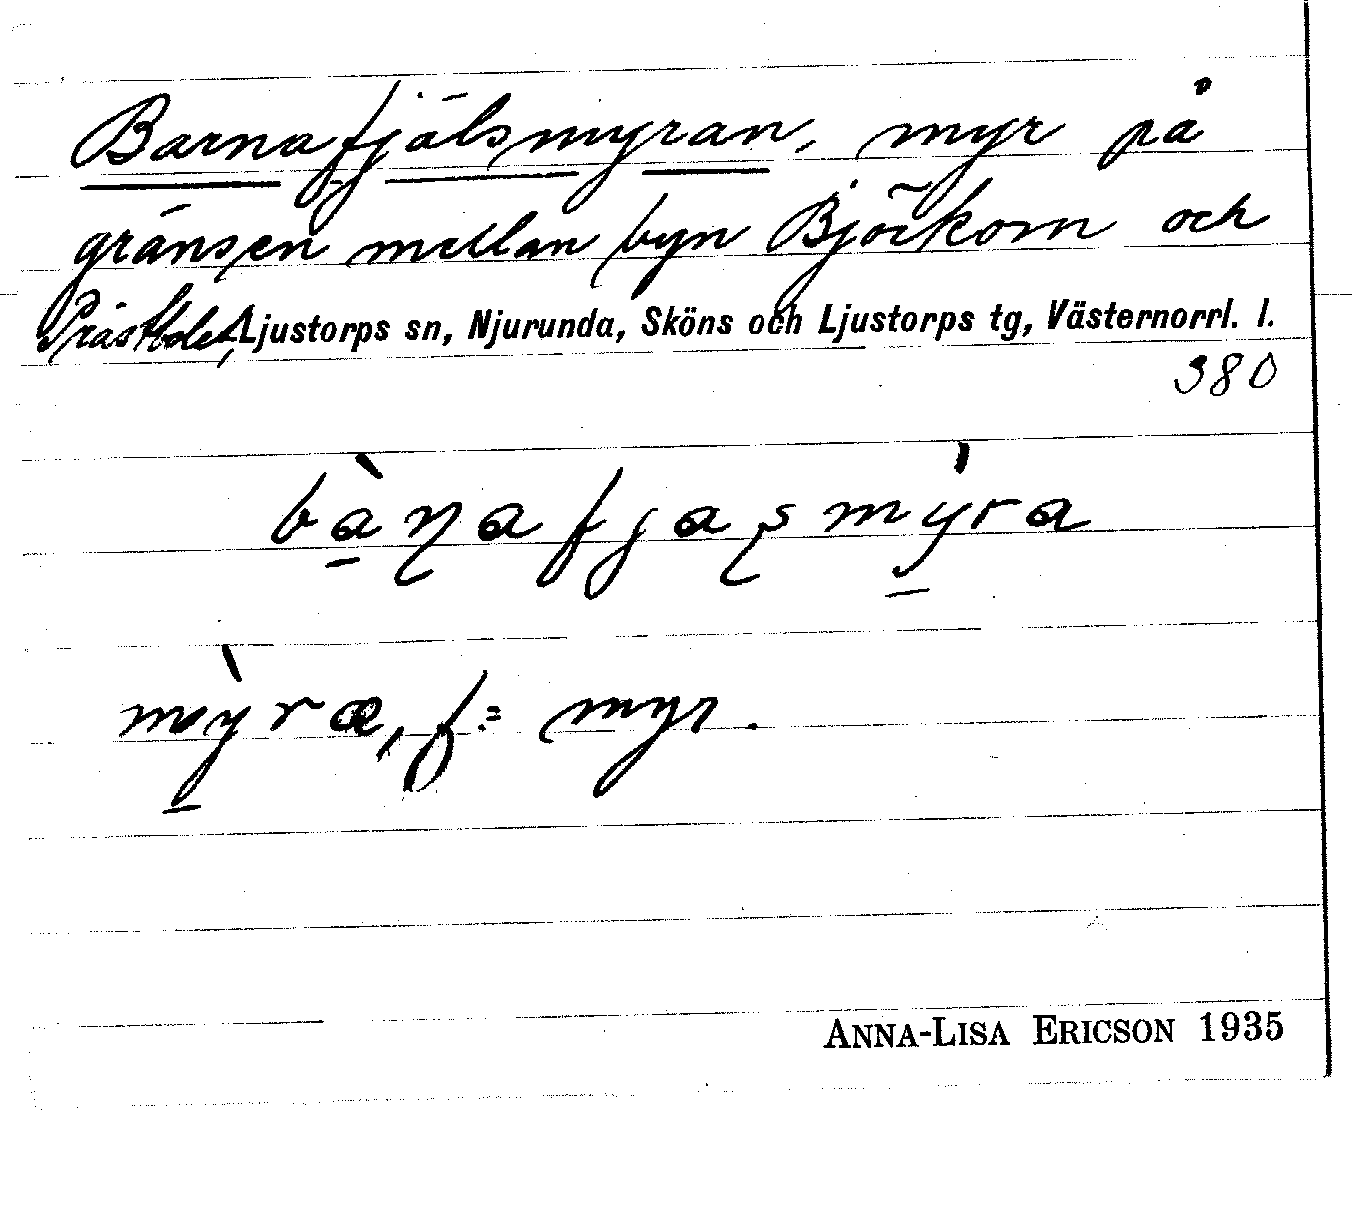 Barnafjälsmyran, myr på
gränsen mellan byn Björkom och
Prästbolet, Ljustorps sn, Njurunda, Sköns och Ljustorps tg, Västernorrl. l.
380
bànafjasmýra
mỳræ, f = myr.
ANNA-LISA ERICSON 1935